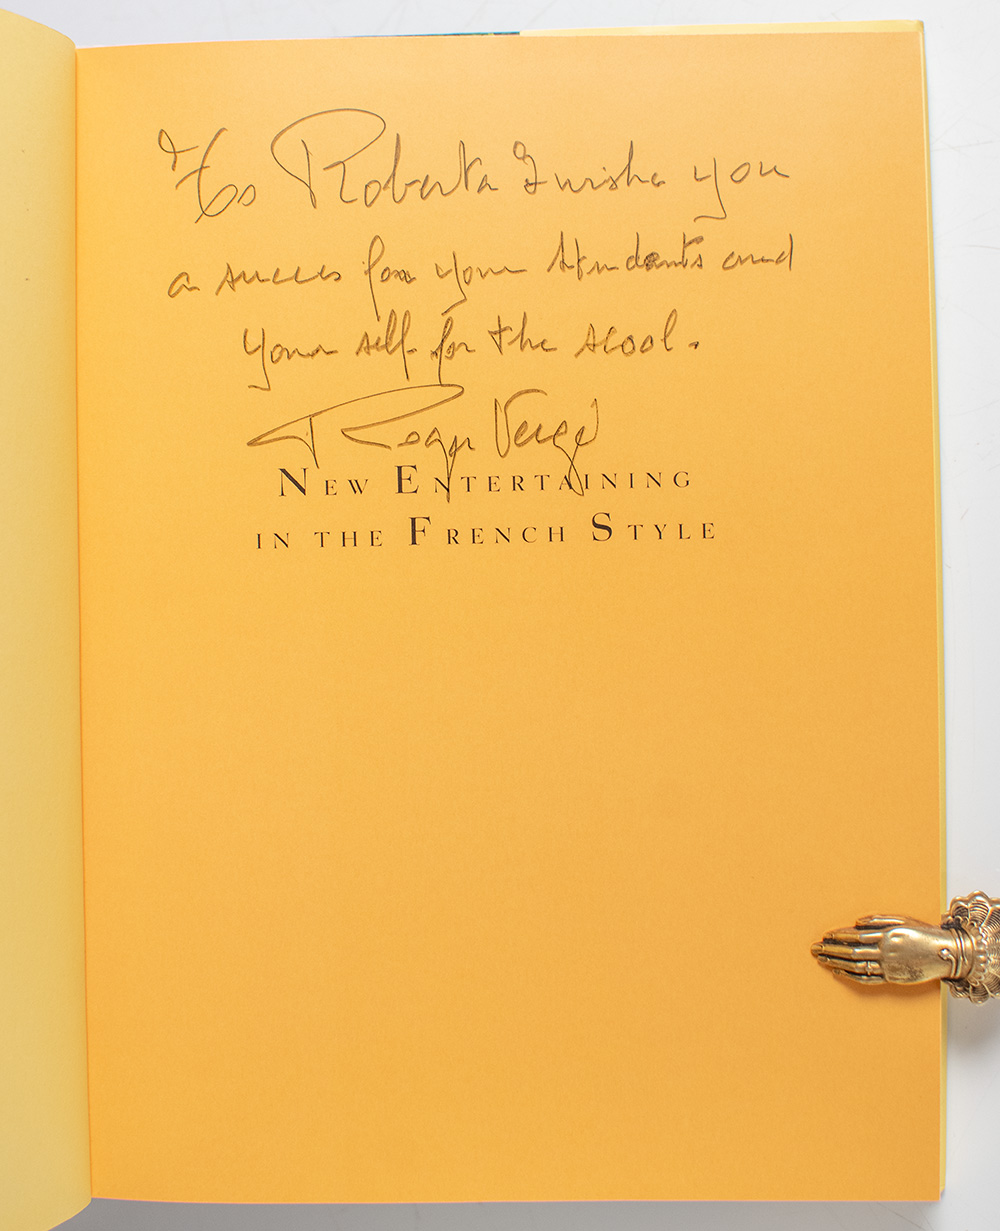 To Roberta I wishe you
a succes for your students and
your self for the scool.
Roger Vergé
NEW ENTERTAINING
IN THE FRENCH STYLE